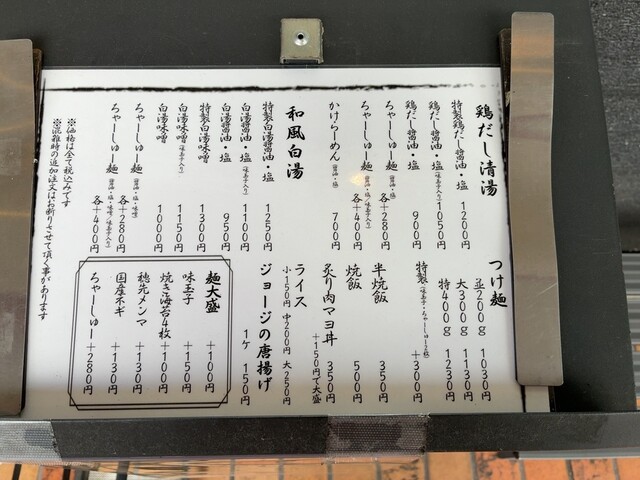 鶏だし清湯
特製鶏だし醤油・塩 1200円
鶏だし醤油・塩(味玉子入り) 1050円
鶏だし醤油・塩 900円
ちゃーしゅー麺(醤油・塩) 各+280円
ちゃーしゅー麺(醤油・塩/味玉子入り) 各+400円
かけらーめん(醤油・塩) 700円
和風白湯
特製白湯醤油・塩 1250円
白湯醤油・塩(味玉子入り) 1100円
白湯醤油・塩 950円
特製白湯味噌 1300円
白湯味噌(味玉子入り) 1150円
白湯味噌 1000円
ちゃーしゅー麺(醤油・塩・味噌) 各+280円
ちゃーしゅー麺(醤油・塩・味噌/味玉子入り) 各+400円
※価格は全て税込みです
※混雑時の追加注文はお断りさせて頂く事があります
つけ麺
並200g 1030円
大300g 1130円
特400g 1230円
特製(味玉子・ちゃーしゅー2枚) +300円
半焼飯 350円
焼飯 500円
炙り肉マヨ丼 350円
+150円で大盛
ライス
小150円 中200円 大250円
ジョージの唐揚げ
1ケ 150円
麺大盛 +100円
味玉子 +150円
焼き海苔4枚 +100円
穂先メンマ +130円
国産ネギ +130円
ちゃーしゅー +280円